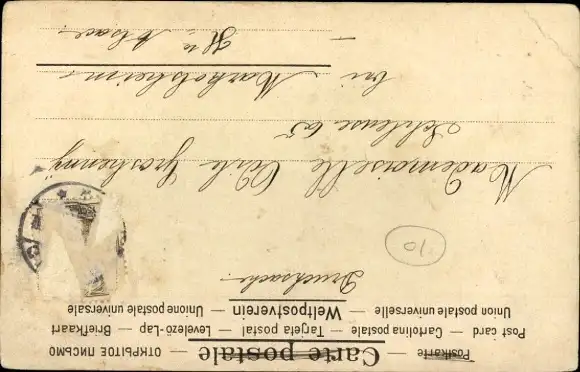 Postkarte — Carte postale — ОТКРЫТОЕ ПИСЬМО
Post card — Cartolina postale — Tarjeta postal — Levelező-Lap — Briefkaart
Union postale universelle — Weltpostverein — Unione postale universale
Drucksache
10
Mademoiselle Odile Groshenny
Schleuse 65
bei Markolsheim
— Hte Alsace